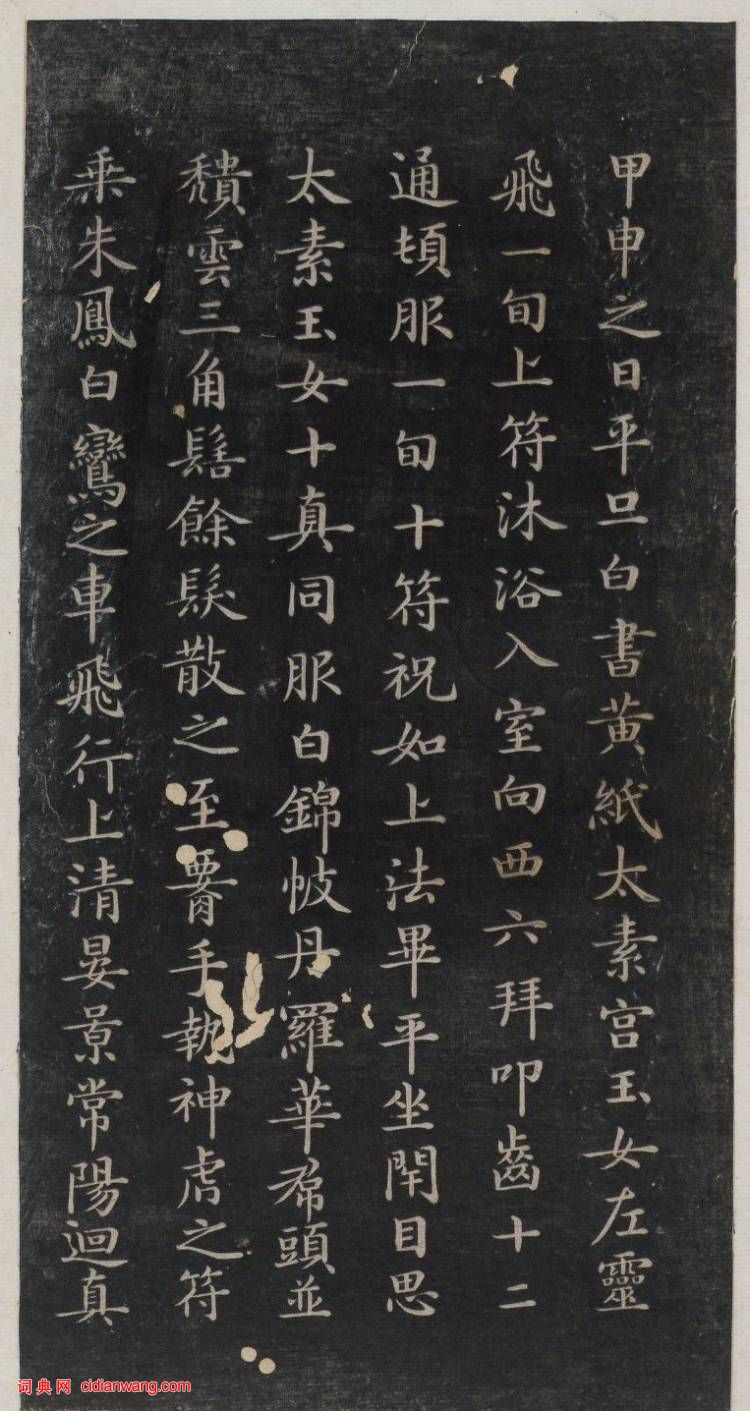 甲申之日平旦白書黃紙太素宮玉女左靈
飛一旬上符沐浴入室向西六拜叩齒十二
通頓服一旬十符祝如上法畢平坐閇目思
太素玉女十真同服白錦帔丹羅華帬頭並
頽雲三角髻餘髮散之至署手執神虎之符
乗朱鳳白鸞之車飛行上清晏景常陽迴真
词典网 cidianwang.com